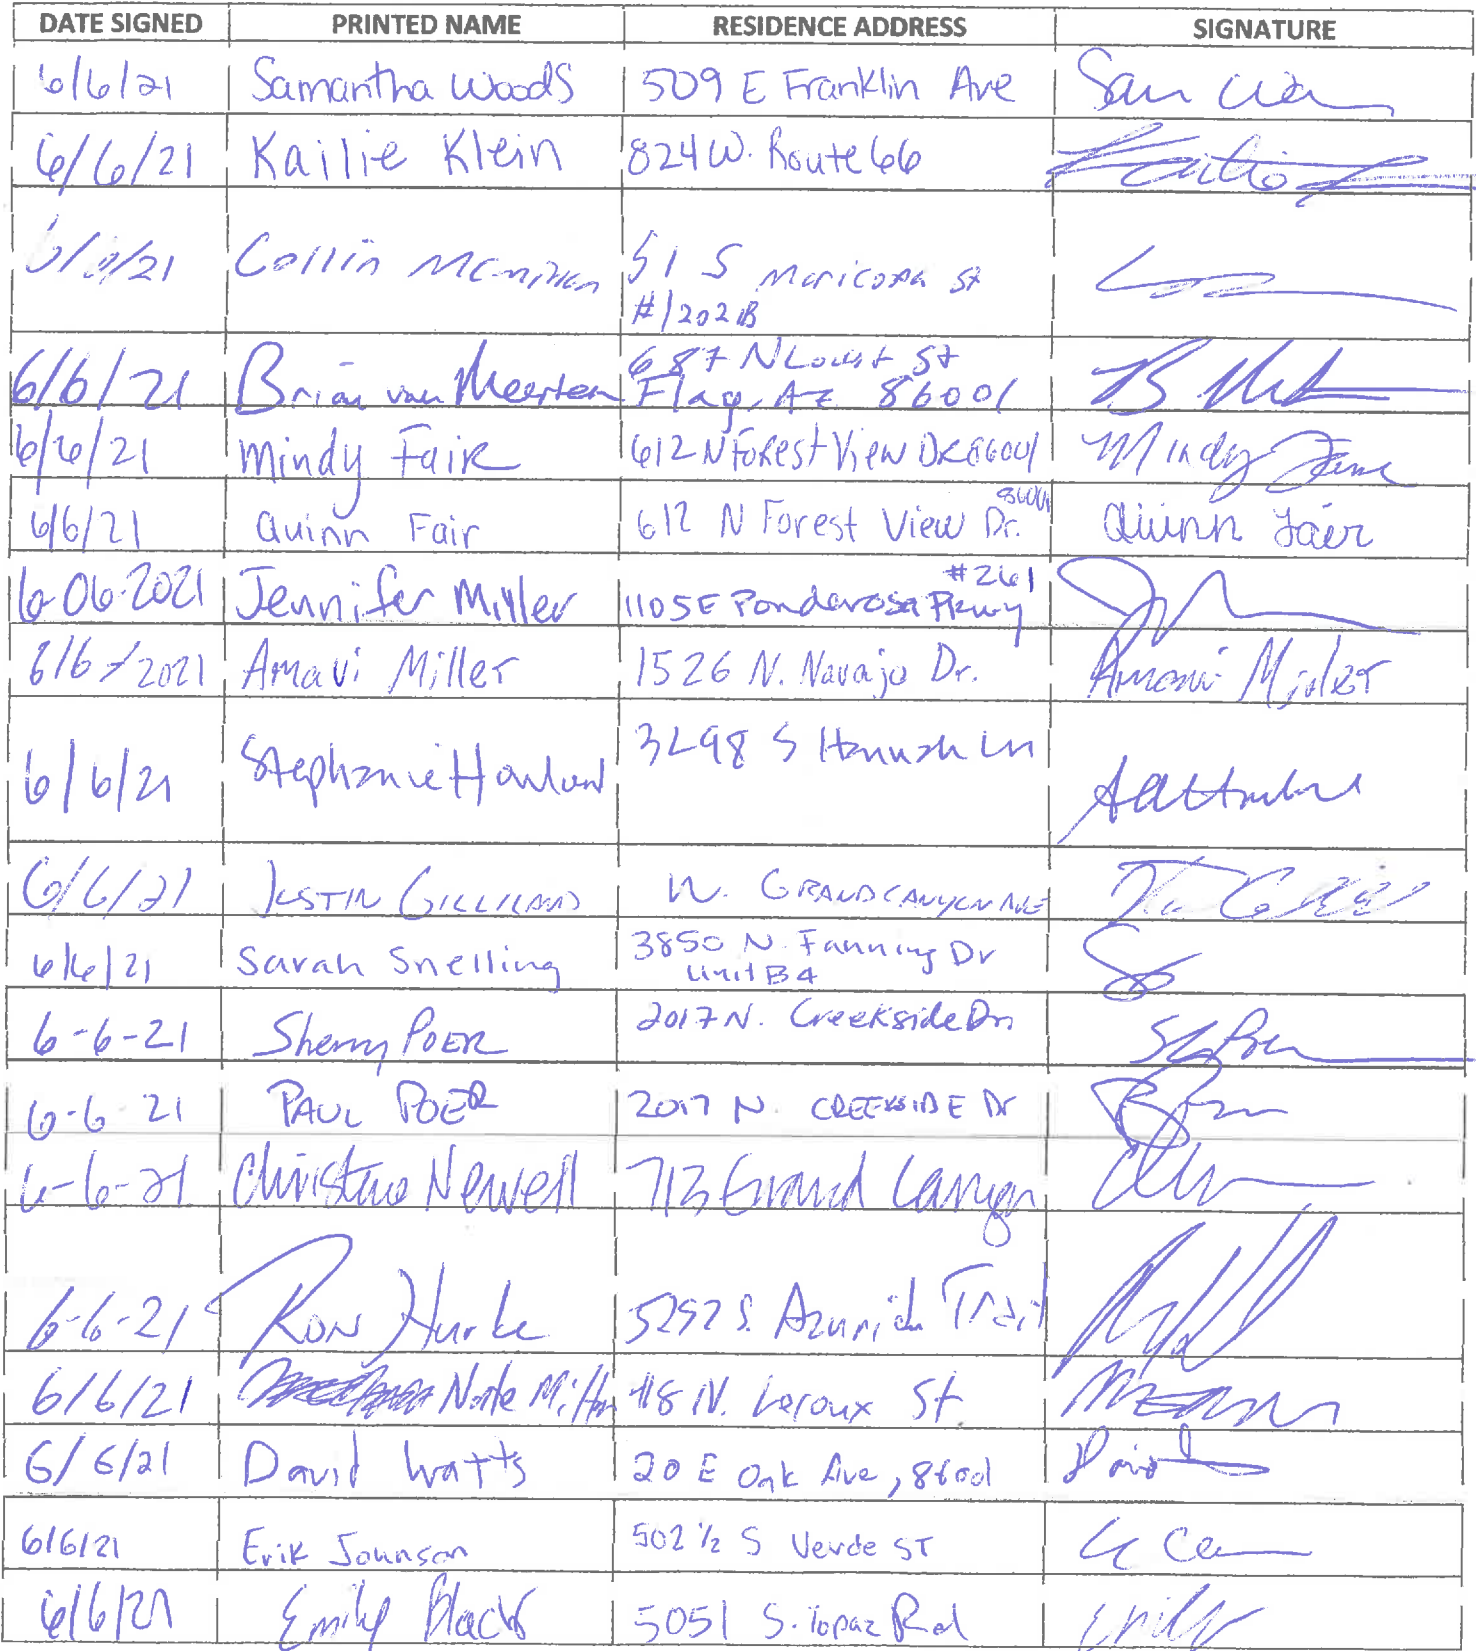 DATE SIGNED PRINTED NAME RESIDENCE ADDRESS SIGNATURE
6/6/21 Samantha Woods 509 E Franklin Ave
6/6/21 Kailie Klein 824 W. Route 66
6/6/21 Collin McMillan 51 S Maricopa St
#1202B
6/6/21 Brian van Meerten 687 N Locust St
Flag, AZ 86001
6/6/21 Mindy Fair 612 N Forest View Dr 86001 Mindy Fair
6/6/21 Quinn Fair 612 N Forest View Dr. 86001 Quinn Fair
6-06-2021 Jennifer Miller 1105 E Ponderosa Pkwy #261
6/6/2021 Amavi Miller 1526 N. Navajo Dr. Amavi Miller
6/6/21 Stephanie 3298 S Hannah Ln
6/6/21 JUSTIN GILLILAND W. GRAND CANYON AVE
6/6/21 Sarah Snelling 3850 N. Fanning Dr
Unit B4
6-6-21 Sherry POER 2017 N. Creekside Dr
6-6 21 PAUL POER 2017 N. CREEKSIDE Dr
6-6-21 Christine Newell 713 Grand Canyon
6-6-21 RON 5252 S. Trail
6/6/21 Milton 118 N. Leroux St
6/6/21 David Watts 20 E Oak Ave, 86001 David
6/6/21 Erik Johnson 502 1/2 S Verde ST
6/6/21 Emily Black 5051 S. Topaz Rd Emily